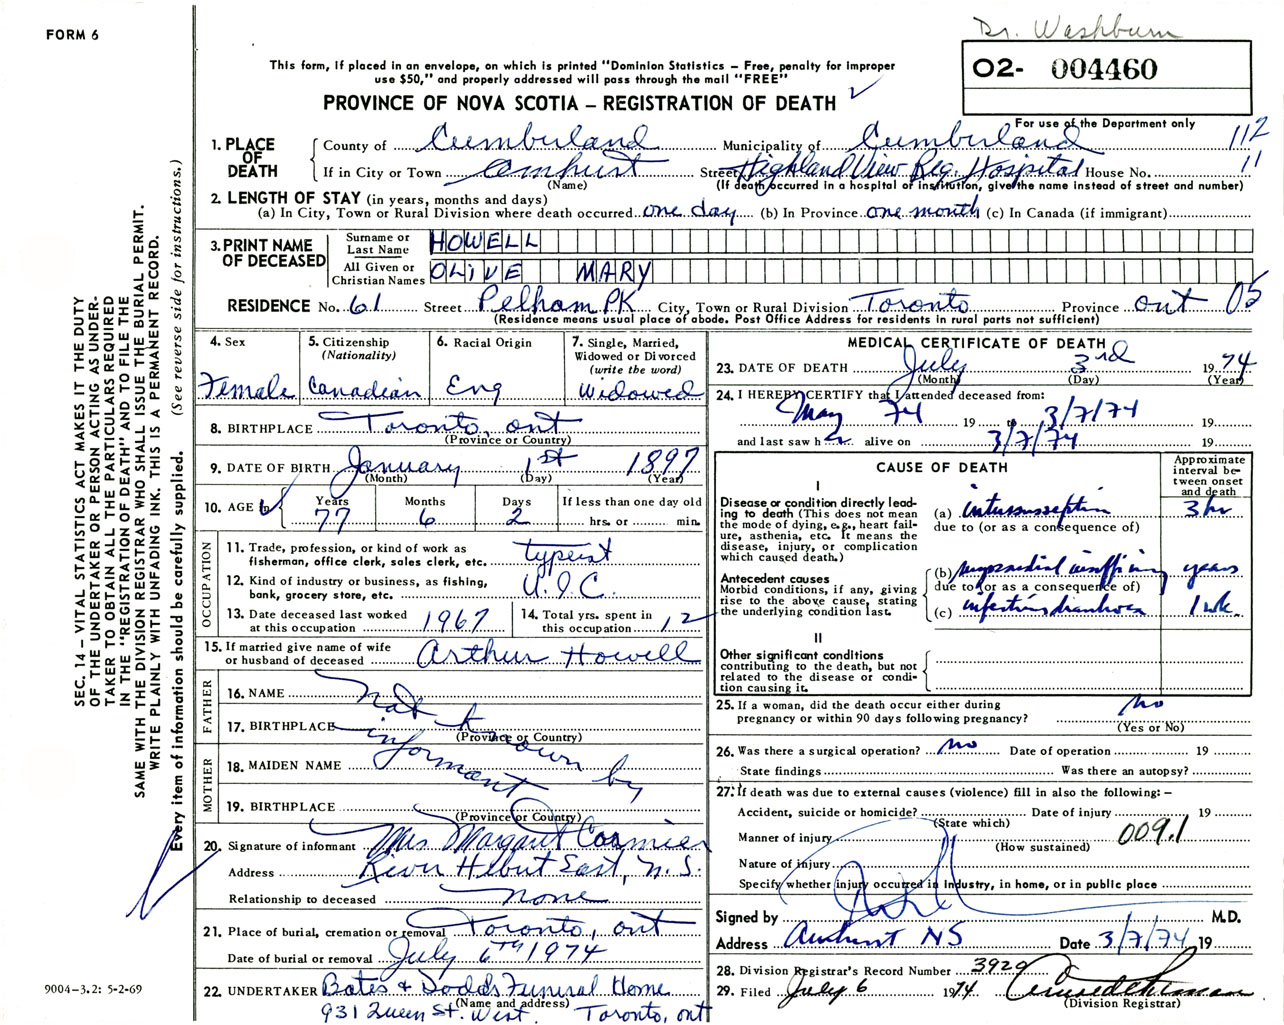 Dr. Washburn
FORM 6
O2- 004460
This form, If placed in an envelope, on which is printed "Dominion Statistics – Free, penalty for improper
use $50," and properly addressed will pass through the mail "FREE"
PROVINCE OF NOVA SCOTIA – REGISTRATION OF DEATH
For use of the Department only
112
11
1. PLACE OF DEATH
County of Cumberland Municipality of Cumberland
If in City or Town Amhurst Street Highland View Reg. Hospital House No.
(Name) (If death occurred in a hospital or institution, give the name instead of street and number)
2. LENGTH OF STAY (in years, months and days)
(a) In City, Town or Rural Division where death occurred one day (b) In Province one month (c) In Canada (if immigrant)
3. PRINT NAME OF DECEASED
Surname or Last Name HOWELL
All Given or Christian Names OLIVE MARY
RESIDENCE No. 61 Street Pelham PK City, Town or Rural Division Toronto Province ont 05
(Residence means usual place of abode. Post Office Address for residents in rural parts not sufficient)
SEC. 14 – VITAL STATISTICS ACT MAKES IT THE DUTY
OF THE UNDERTAKER OR PERSON ACTING AS UNDER-
TAKER TO OBTAIN ALL THE PARTICULARS REQUIRED
IN THE "REGISTRATION OF DEATH" AND TO FILE THE
SAME WITH THE DIVISION REGISTRAR WHO SHALL ISSUE THE BURIAL PERMIT.
WRITE PLAINLY WITH UNFADING INK. THIS IS A PERMANENT RECORD.
Every item of information should be carefully supplied. (See reverse side for instructions.)
4. Sex
Female
5. Citizenship
(Nationality)
Canadian
6. Racial Origin
Eng
7. Single, Married,
Widowed or Divorced
(write the word)
Widowed
8. BIRTHPLACE Toronto, ont
(Province or Country)
9. DATE OF BIRTH January 1st 1897
(Month) (Day) (Year)
10. AGE in
Years Months Days If less than one day old
77 6 2 hrs. or min.
OCCUPATION
11. Trade, profession, or kind of work as
fisherman, office clerk, sales clerk, etc. typeist
12. Kind of industry or business, as fishing,
bank, grocery store, etc. U.I.C.
13. Date deceased last worked
at this occupation 1967
14. Total yrs. spent in
this occupation 12
15. If married give name of wife
or husband of deceased Arthur Howell
FATHER
16. NAME
17. BIRTHPLACE
(Province or Country)
MOTHER
18. MAIDEN NAME
19. BIRTHPLACE
(Province or Country)
Not known by
informant
20. Signature of informant Mrs. Margaret Cormier
Address River Hebert East, N.S.
Relationship to deceased none
21. Place of burial, cremation or removal Toronto, ont
Date of burial or removal July 6TH 1974
22. UNDERTAKER Bates & Dodds Funeral Home
(Name and address)
931 Queen St. West. Toronto, ont
9004–3.2: 5-2-69
MEDICAL CERTIFICATE OF DEATH
23. DATE OF DEATH July 3rd 19 74
(Month) (Day) (Year)
24. I HEREBY CERTIFY that I attended deceased from:
May 74 19 to 3/7/74 19
and last saw her alive on 3/7/74 19
CAUSE OF DEATH
Approximate
interval be-
tween onset
and death
I
Disease or condition directly lead-
ing to death (This does not mean
the mode of dying, e.g., heart fail-
ure, asthenia, etc. It means the
disease, injury, or complication
which caused death.)
(a) intussusception 3 hr
due to (or as a consequence of)
Antecedent causes
Morbid conditions, if any, giving
rise to the above cause, stating
the underlying condition last.
(b) myocardial insufficiency years
due to (or as a consequence of)
(c) infectious diarrhoea 1 wk.
II
Other significant conditions
contributing to the death, but not
related to the disease or condi-
tion causing it.
25. If a woman, did the death occur either during
pregnancy or within 90 days following pregnancy? No
(Yes or No)
26. Was there a surgical operation? No Date of operation 19
State findings Was there an autopsy?
27. If death was due to external causes (violence) fill in also the following: –
Accident, suicide or homicide? Date of injury 19
(State which)
Manner of injury 009.1
(How sustained)
Nature of injury
Specify whether injury occurred in Industry, in home, or in public place
Signed by M.D.
Address Amherst NS Date 3/7/74 19
28. Division Registrar's Record Number 3929
29. Filed July 6 1974
(Division Registrar)